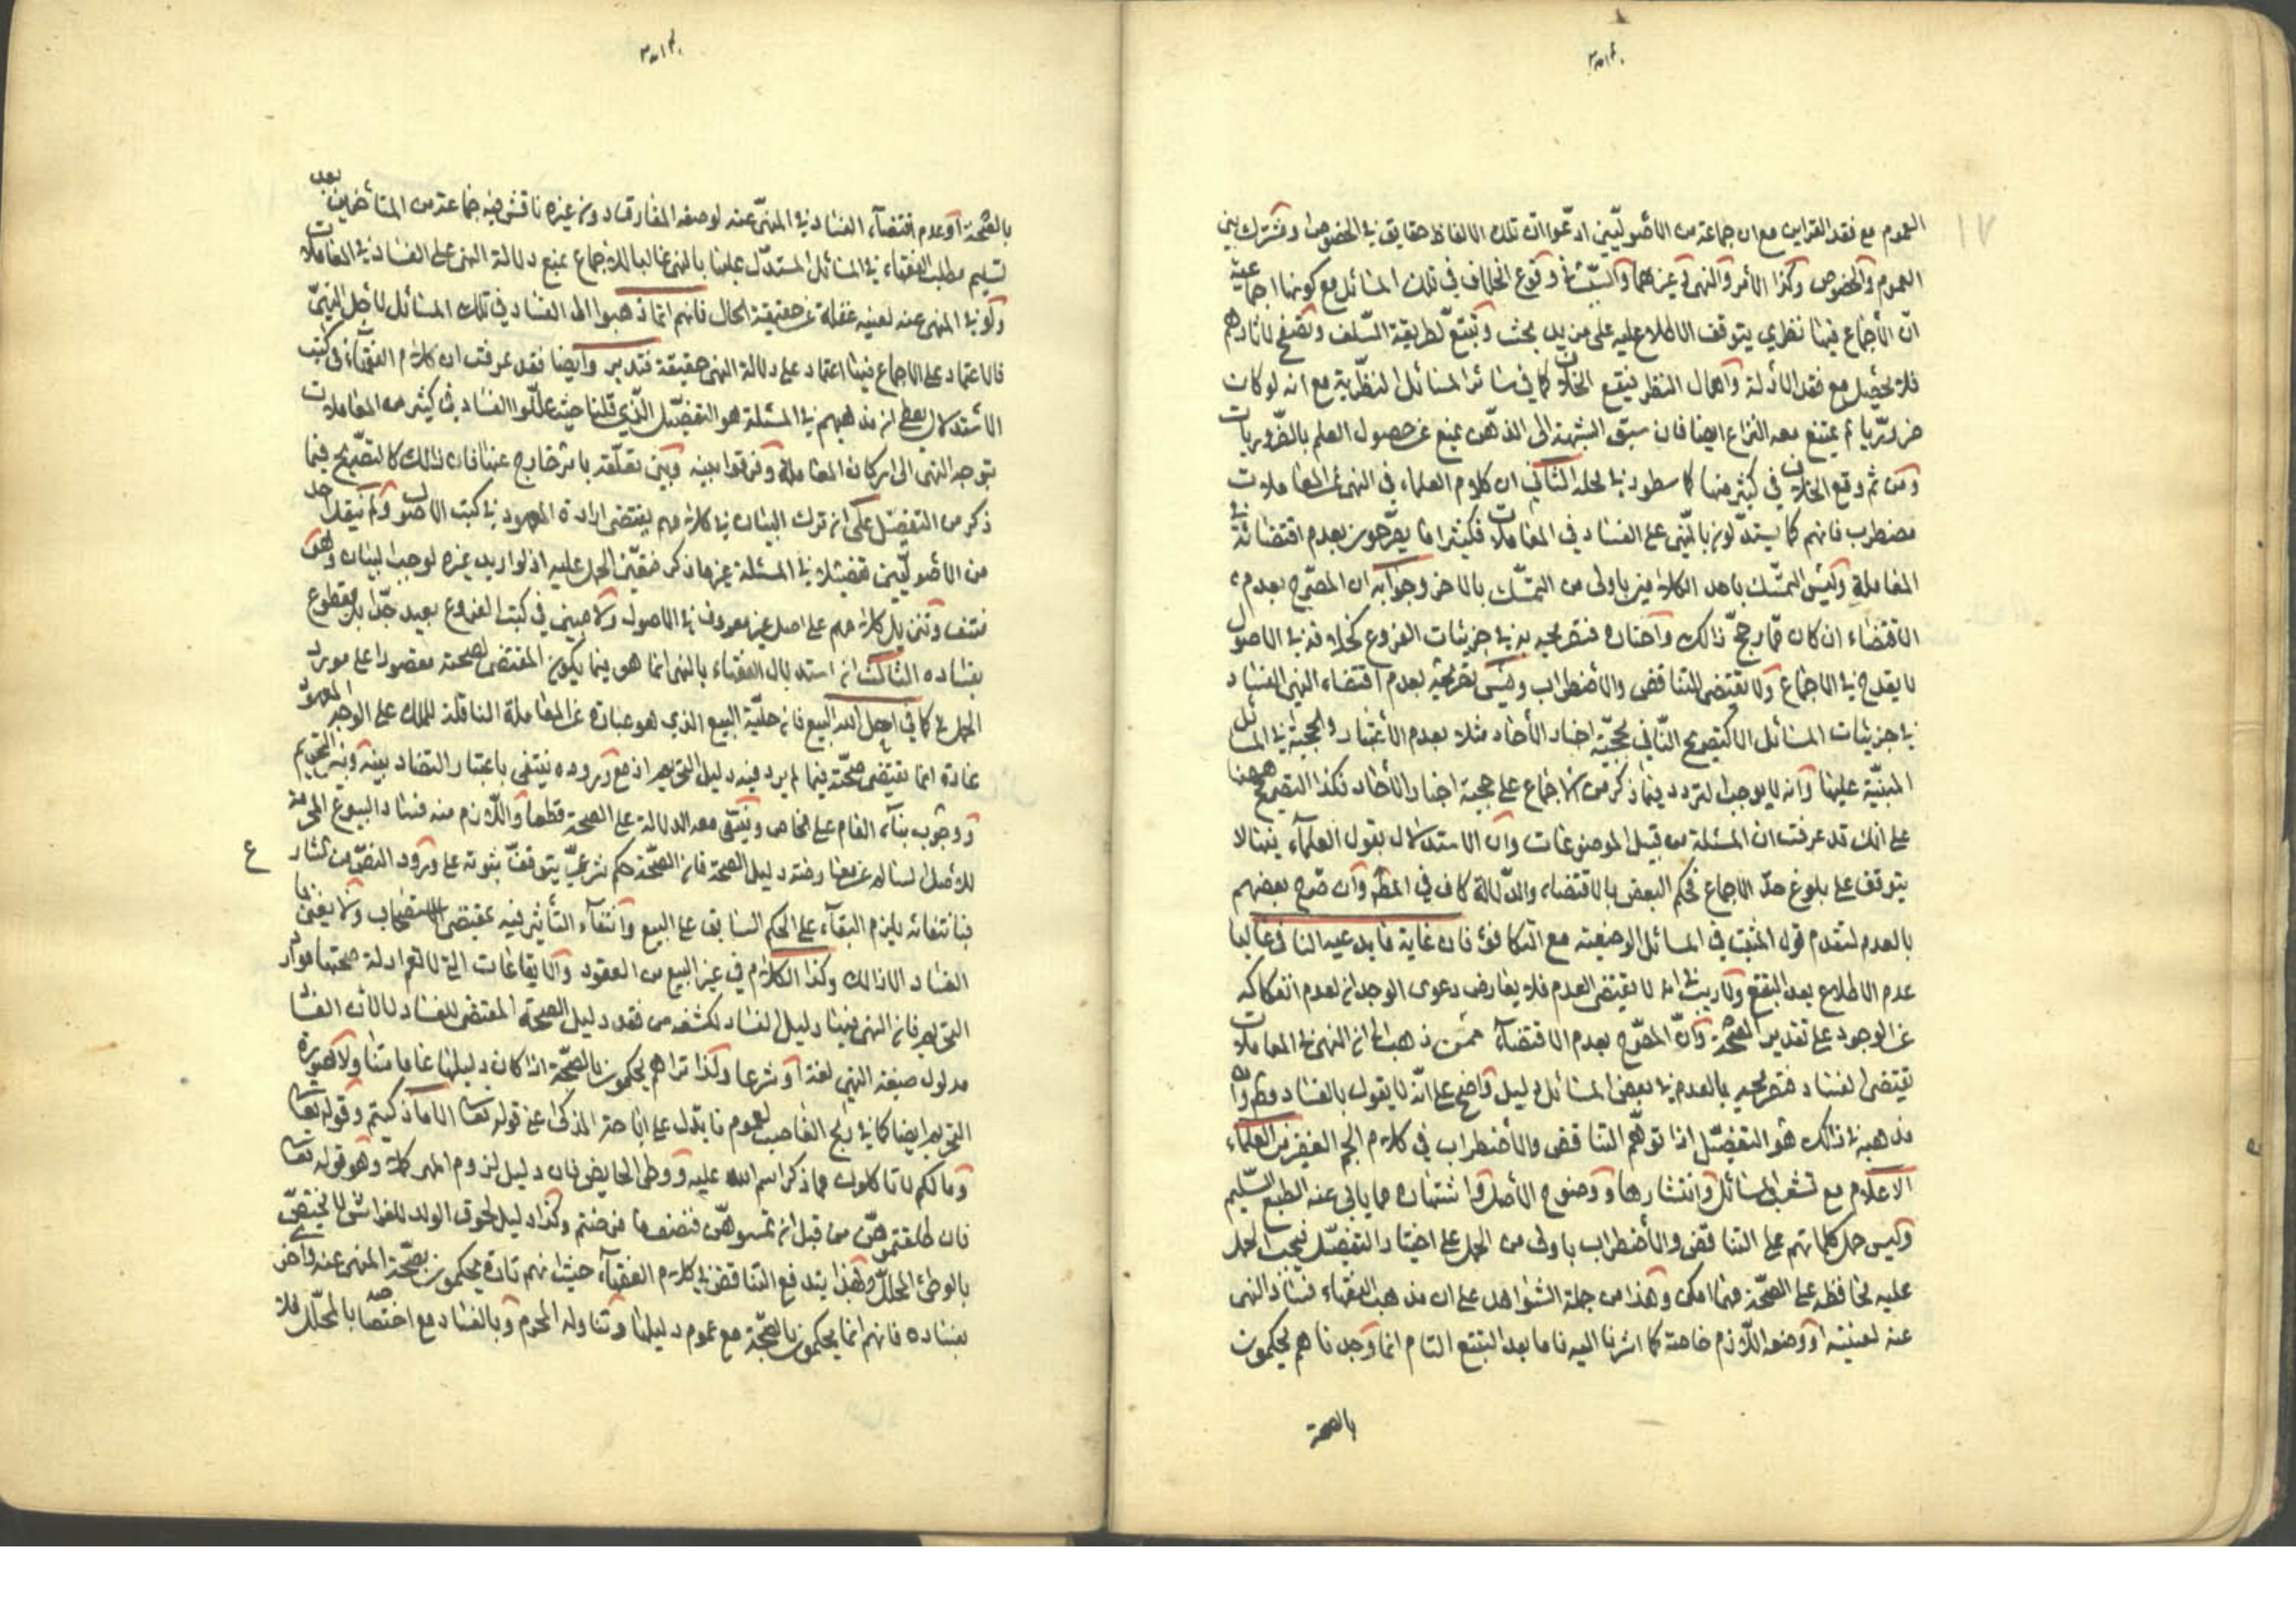 العموم مع فقد القراين مع ان جماعة من الأصوليّين ادعوا ان تلك الالفاظ حقايق في الخصوص او مشترك بين
العموم والخصوص وكذا الأمر والنهى وغيرهما والسّر في وقوع الخلاف في تلك المسائل مع كونها اجماعية
انّ الأجماع فيها نظري يتوقف الاطلاع عليه على مزيد بحث وتتبّع لطريقة السّلف وتصفح لآثارهم
فلا يحصل مع فقد الأدلة واهمال النظر فيقع الخلاف كما في سائر المسائل النظريّة مع انه لو كان
ضروريّا لم يمتنع معه النزاع ايضا فان سبق الشبهة الى الذهن يمنع عن حصول العلم بالضّروريات
ومن ثم وقع الخلاف في كثير منها كما سطور في محله الثاني ان كلام العلماء في النهى عن المعاملات
مضطرب فانهم كما يستدلّون بالنّهى على الفساد في المعاملات فكثيرا ما يصّرحون بعدم اقتضائه في
المعاملة وليس التمسّك باحد الكلامين باولى من التمسّك بالاخر وجوابه ان المصرّح بعدم
الاقتضاء ان كان ممّن رجحّ ذالك واختاره فتصريحه به في جزئيات الفروع كخلافه في الاصول
لا يقدح في الاجماع ولا يقتضى التناقض والأضطراب وليس تصريحه بعدم اقتضاء النهى الفساد
في جزئيات المسائل الا كتصريح النّافي لحجيّة اخبار الأحاد مثلا بعدم الأعتبار والحجية في المسائل
المبنيّة عليها وانه لا يوجب التردد فيما ذكر من الاجماع على حجية اخبار الأحاد فكذا التصريح ههنا
على انك قد عرفت ان المسئلة من قبيل الموضوعات وان الاستدلال بقول العلمآء فيها لا
يتوقف على بلوغ حدّ الاجماع فحكم البعض بالاقتضاء والدّلالة كاف في المط وان صّرح بعضهم
بالعدم لتقدم قول المثبت في المسائل الوضعية مع التكافؤ فان غاية ما يدعيه النافى غالبا
عدم الاطلاع بعد التتبع ولا ريب في انه لا يقتضى العدم فلا يعارض دعوى الوجدان لعدم انفكاكه
عن الوجود على تقدير الصّحة وان المصّرح بعدم الاقتضآء ممّن ذهب الى ان النهى في المعاملات
يقتضى الفساد فتصريحه بالعدم في بعض المسائل دليل واضح على انّه لا يقول بالفساد مط وان
مذهبه في ذالك هو التفصّيل اذا توهّم التناقض والأضطراب في كلام الجم الغفير من العلماء
الاعلام مع تشعب المسائل وانتشارها ووضوح الأصل واشتهاره مما يابى عنه الطبع السّليم
وليس حمل كلماتهم على التناقض والأضطراب باولى من الحمل على اختيار التفصّيل فيجب الحمل
عليه محافظة على الصّحة مهما امكن وهذا من جملة الشواهد على ان مذهب الفقهاء فساد النهى
عنه لعينه او وصفه اللّازم خاصة كما اشرنا اليه فاما بعد التتبع التام انما وجدناهم يحكمون
بالصحة
بالصّحة او عدم اقتضآء الفساد في المنهىّ عنه لوصفه المفارق دون غيره ناقش فيه جماعة من المتأخّرين بعد
تسليم مطلب الفقهاء في المسائل المستدّل عليها بالنهى غالبا للاجماع بمنع دلالة النهى على الفساد في المعاملات
ولو في المنهى عنه لعينه غفلة عن حقيقة الحال فانهم انما ذهبوا الى الفساد في تلك المسائل لأجل النهىّ
فالاعتماد على الاجماع فيها اعتماد على دلالة النهى حقيقة فتدبر وايضا فقد عرفت ان كلام الفقهآء في كتب
الأستدلال يعطى ان مذهبهم في المسئلة هو التفصّيل الّذي قلنا حيث علّلوا الفساد في كثير من المعاملات
بتوجه النهى الى اركان المعاملة وفرقوا بينه وبين تعلّقه بامر خارج عنها فان ذلك كالتصّريح فيما
ذكر من التفصّيل على ان ترك البيان في كلامهم يقتضى ارادة المعهود في كتب الاصول ولم ينقل احد
من الأصوليّين تفصيلا في المسئلة غير ما ذكر فتعيّن الحمل عليه اذ لو اريد غيره لوجب البيان وهو
منتف وتنزيل كلامهم على اصل غير معروف في الاصول ولا مبين في كتب الفروع بعيد جّدا بل مقطوع
بفساده الثالث ان استدلال الفقهاء بالنهى انما هو فيما يكون المقتضى لصحته مقصورا على مورد
الحمل كما في احل الله البيع فان حليّة البيع الذي هو عبارة عن المعاملة الناقلة للملك على الوجه المعهود
عادة انما يقتضى صحّته فيما لم يرد فيه دليل التحريم اذ مع وروده ينتفى باعتبار التضاد بينه وبين التحريم
ووجوب بنآء العام على الخاص وينتفى معه الدلالة على الصحة قطعا واللّازم منه فساد البيوع المحرمة
للأصل السالم عن معارضة دليل الصحة فان الصّحة حكم شرعىّ يتوقف ثبوته على ورود النصّ من الشارع
فبانتفائه يلزم البقآء على الحكم السابق على البيع وانتفآء التأثير فيه بمقتضى الاستصحاب ولا يعنى بها
الفساد الا ذالك وكذا الكلام في غير البيع من العقود والايقاعات التي لا تعم ادلة صحتها موارد
التحريم فان النهى فيها دليل الفساد لكشفه من فقد دليل الصحة المقتضى للفساد لا لأن الفساد
مدلول صيغة النهى لغة او شرعا ولذا تراهم يحكمون بالصّحة اذا كان دليلها عاما متناولا لصورة
التحريم ايضا كما في ذبح الغاصب لعموم ما يدل على اباحة المذكى اعنى قوله تعالى الا ما ذكيتم وقوله تعالى
وما لكم لا تاكلون مما ذكر اسم الله عليه ووطى الحايض فان دليل لزوم المهر كلا وهو قوله تعالى
فان طلقتموهّن من قبل ان تمسوهّن فنصف ما فرضتم وكذا دليل لحوق الولد للفراش لا يختصّ
بالوطئ المحلّل وبهذا يندفع التناقض في كلام الفقهآء حيث انهم تارة يحكمون بصّحة المنهى عنه واخرى
بفساده فانهم انما يحكمون بالصّحة مع عموم دليلها وتناوله المحرم وبالفساد مع اختصاصه بالمحلّل فلا